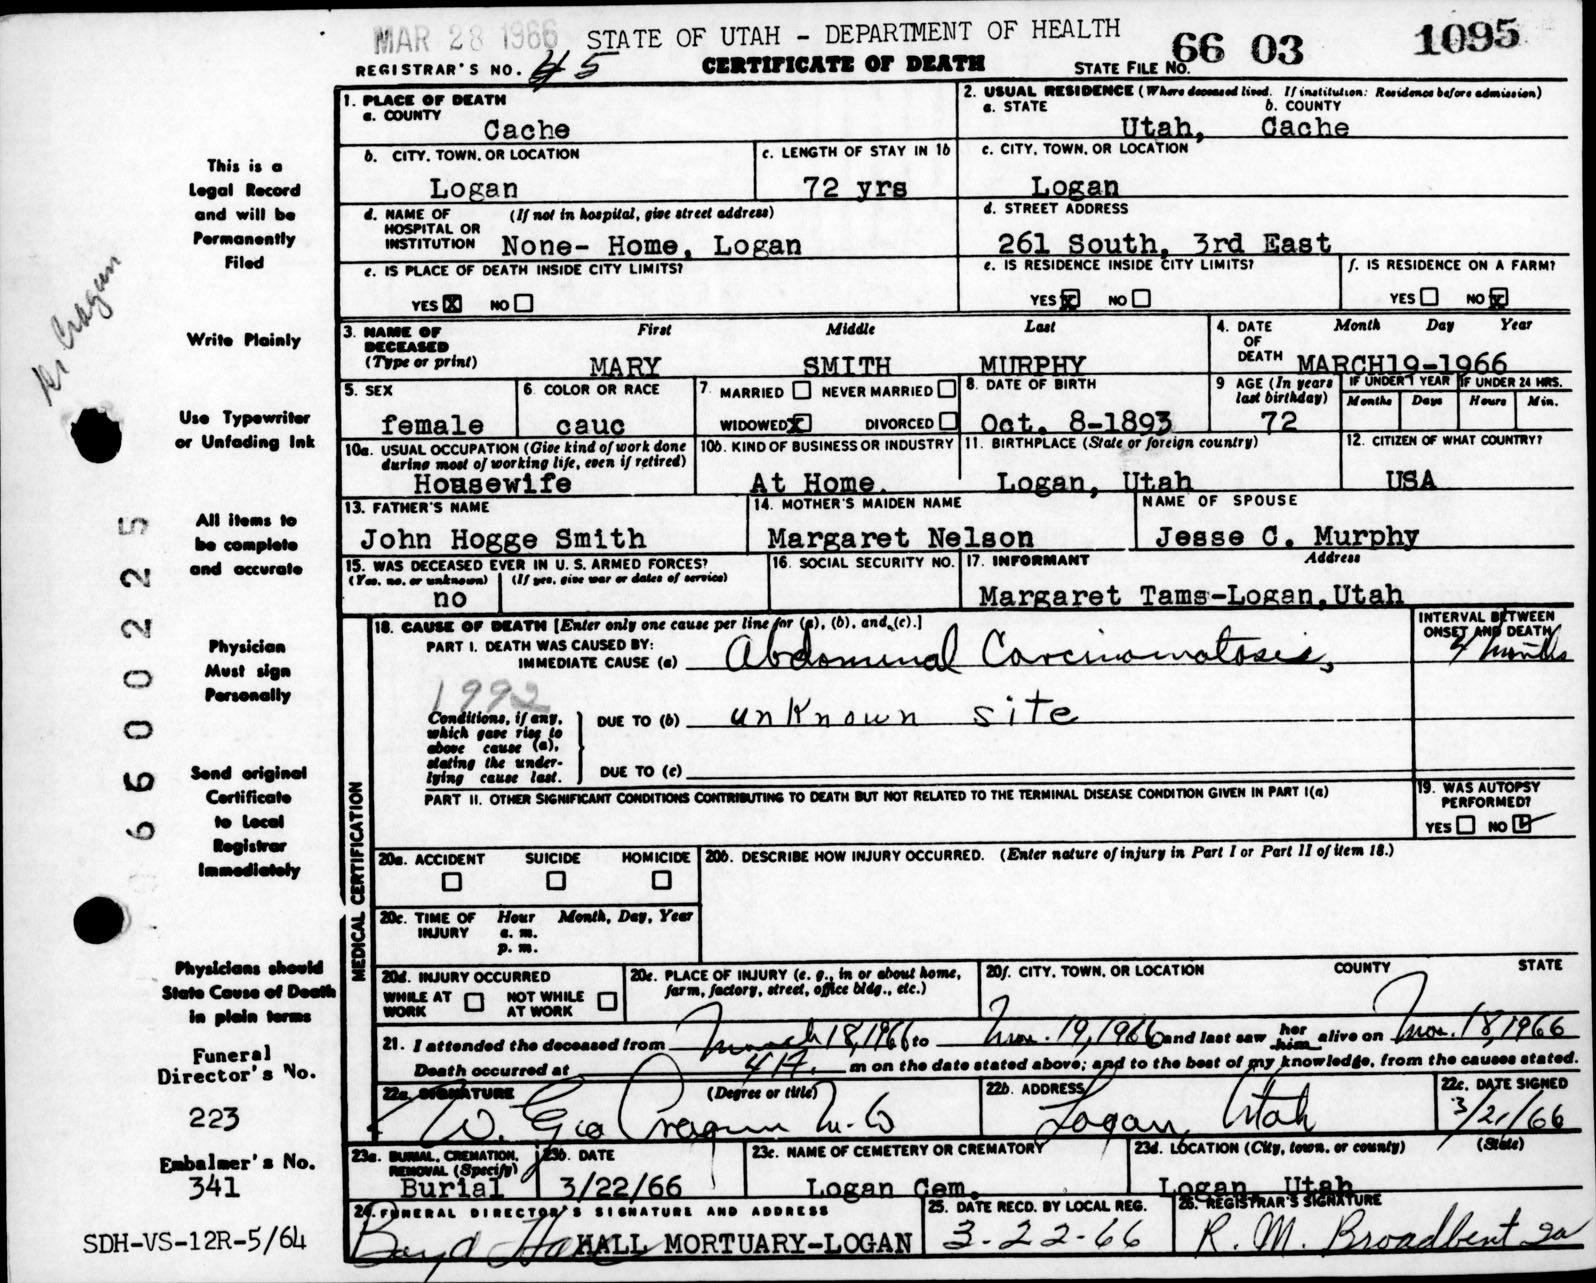 MAR 28 1966 STATE OF UTAH - DEPARTMENT OF HEALTH 66 03 1095
REGISTRAR'S NO. 45 CERTIFICATE OF DEATH STATE FILE NO.
1. PLACE OF DEATH
a. COUNTY
Cache
2. USUAL RESIDENCE (Where deceased lived. If institution: Residence before admission)
a. STATE b. COUNTY
Utah, Cache
b. CITY, TOWN, OR LOCATION
Logan
c. LENGTH OF STAY IN 1b
72 yrs
c. CITY, TOWN, OR LOCATION
Logan
d. NAME OF (If not in hospital, give street address)
HOSPITAL OR
INSTITUTION None- Home, Logan
d. STREET ADDRESS
261 South, 3rd East
e. IS PLACE OF DEATH INSIDE CITY LIMITS?
YES X NO
e. IS RESIDENCE INSIDE CITY LIMITS?
YES X NO
f. IS RESIDENCE ON A FARM?
YES NO X
3. NAME OF
DECEASED
(Type or print)
First Middle Last
MARY SMITH MURPHY
4. DATE
OF
DEATH
Month Day Year
MARCH19-1966
5. SEX
female
6. COLOR OR RACE
cauc
7. MARRIED NEVER MARRIED
WIDOWED X DIVORCED
8. DATE OF BIRTH
Oct. 8-1893
9 AGE (In years
last birthday)
72
IF UNDER 1 YEAR IF UNDER 24 HRS.
Months Days Hours Min.
10a. USUAL OCCUPATION (Give kind of work done
during most of working life, even if retired)
Housewife
10b. KIND OF BUSINESS OR INDUSTRY
At Home.
11. BIRTHPLACE (State or foreign country)
Logan, Utah
12. CITIZEN OF WHAT COUNTRY?
USA
13. FATHER'S NAME
John Hogge Smith
14. MOTHER'S MAIDEN NAME
Margaret Nelson
NAME OF SPOUSE
Jesse C. Murphy
15. WAS DECEASED EVER IN U. S. ARMED FORCES?
(Yes, no, or unknown) (If yes, give war or dates of service)
no
16. SOCIAL SECURITY NO.
17. INFORMANT Address
Margaret Tams-Logan,Utah
18. CAUSE OF DEATH [Enter only one cause per line for (a), (b), and (c).]
PART I. DEATH WAS CAUSED BY:
IMMEDIATE CAUSE (a) Abdominal Carcinomatosis,
INTERVAL BETWEEN
ONSET AND DEATH
4 months
1992
Conditions, if any,
which gave rise to
above cause (a),
stating the under-
lying cause last.
DUE TO (b) unknown site
DUE TO (c)
PART II. OTHER SIGNIFICANT CONDITIONS CONTRIBUTING TO DEATH BUT NOT RELATED TO THE TERMINAL DISEASE CONDITION GIVEN IN PART I(a)
19. WAS AUTOPSY
PERFORMED?
YES NO
MEDICAL CERTIFICATION
20a. ACCIDENT SUICIDE HOMICIDE
20b. DESCRIBE HOW INJURY OCCURRED. (Enter nature of injury in Part I or Part II of item 18.)
20c. TIME OF Hour Month, Day, Year
INJURY a. m.
p. m.
20d. INJURY OCCURRED
WHILE AT NOT WHILE
WORK AT WORK
20e. PLACE OF INJURY (e. g., in or about home,
farm, factory, street, office bldg., etc.)
20f. CITY, TOWN, OR LOCATION COUNTY STATE
21. I attended the deceased from March 18, 1966 to Mar. 19, 1966 and last saw her him alive on Mar. 18, 1966
Death occurred at m on the date stated above; and to the best of my knowledge, from the causes stated.
22a. SIGNATURE (Degree or title)
W. Geo Cragun M.D
22b. ADDRESS
Logan, Utah
22c. DATE SIGNED
3/21/66
23a. BURIAL, CREMATION,
REMOVAL (Specify)
Burial
23b. DATE
3/22/66
23c. NAME OF CEMETERY OR CREMATORY
Logan Cem.
23d. LOCATION (City, town, or county) (State)
Logan, Utah
24. FUNERAL DIRECTOR'S SIGNATURE AND ADDRESS
Boyd HALL MORTUARY-LOGAN
25. DATE RECD. BY LOCAL REG.
3-22-66
26. REGISTRAR'S SIGNATURE
R. M. Broadbent
This is a
Legal Record
and will be
Permanently
Filed
Dr Cragun
Write Plainly
Use Typewriter
or Unfading Ink
All items to
be complete
and accurate
6600225
Physician
Must sign
Personally
Send original
Certificate
to Local
Registrar
Immediately
Physicians should
State Cause of Death
in plain terms
Funeral
Director's No.
223
Embalmer's No.
341
SDH-VS-12R-5/64